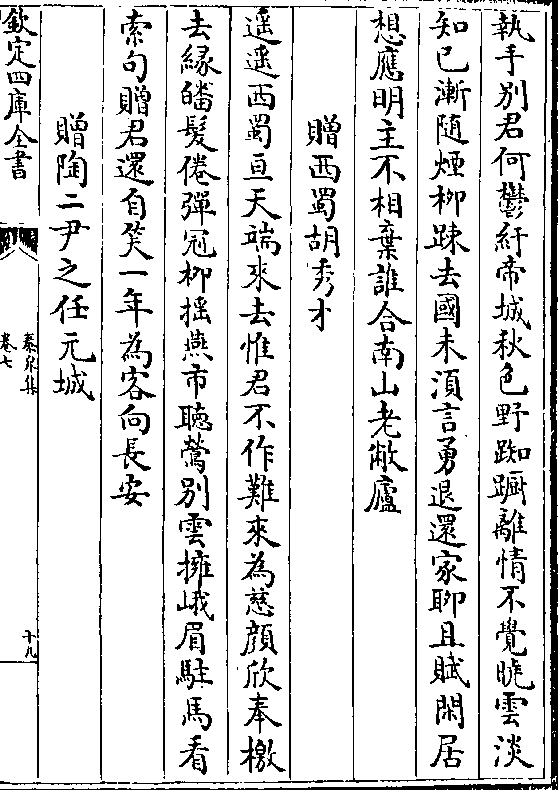 執手别君何鬱紆帝城秋色野踟蹰離情不覺曉雲淡
知已漸隨煙柳踈去國未須言勇退還家聊且賦閑居
想應明主不相棄誰合南山老敝廬
贈西蜀胡秀才
遥遥西蜀亘天端來去惟君不作難來為慈顔欣奉檄
去緣皤髮倦彈冠柳摇燕市聽鶯别雲擁峨眉駐馬看
索句贈君還自笑一年為客向長安
贈陶二尹之任元城
欽定四庫全書
泰泉集
卷七
十九